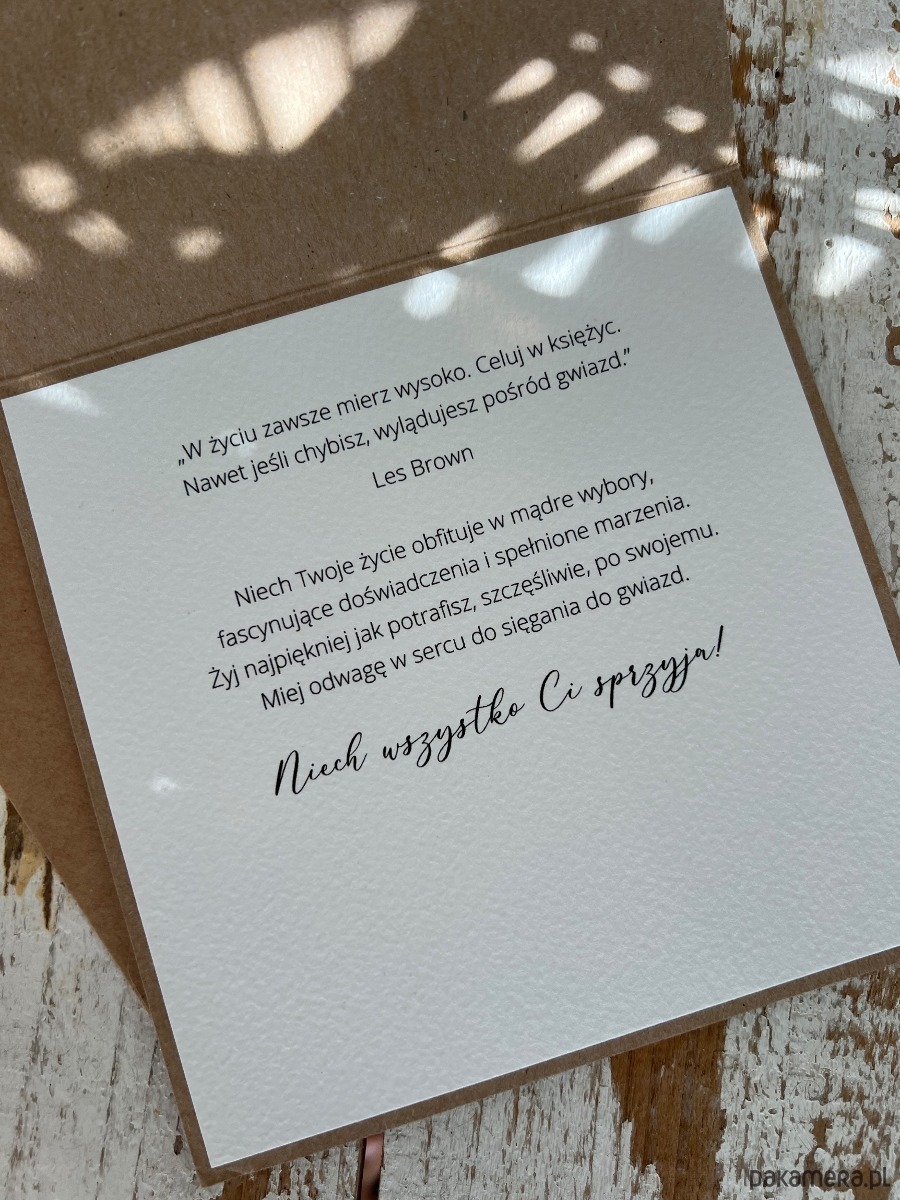 „W życiu zawsze mierz wysoko. Celuj w księżyc.
Nawet jeśli chybisz, wylądujesz pośród gwiazd.”
Les Brown
Niech Twoje życie obfituje w mądre wybory,
fascynujące doświadczenia i spełnione marzenia.
Żyj najpiękniej jak potrafisz, szczęśliwie, po swojemu.
Miej odwagę w sercu do sięgania do gwiazd.
Niech wszystko Ci sprzyja!
pakamera.pl